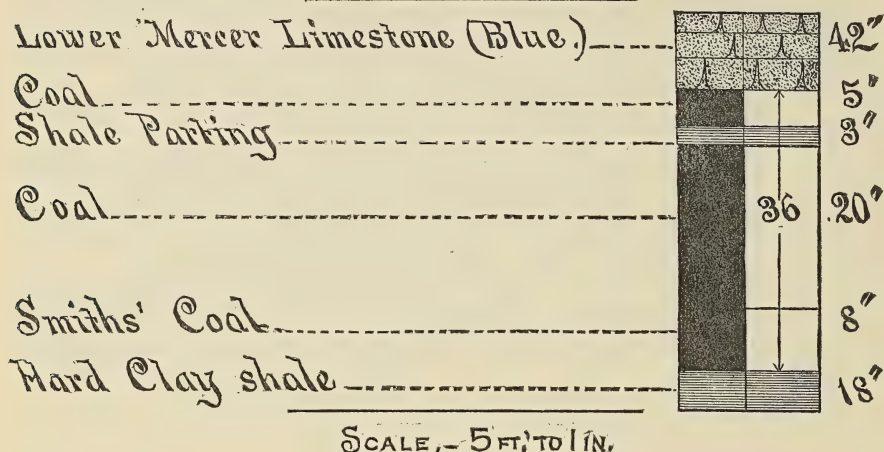 Lower Mercer Limestone (Blue.) 42"
Coal 5"
Shale Parting 3"
Coal 36 20"
Smiths' Coal 8"
Hard Clay shale 18"
SCALE,- 5 FT, TO 1 IN.